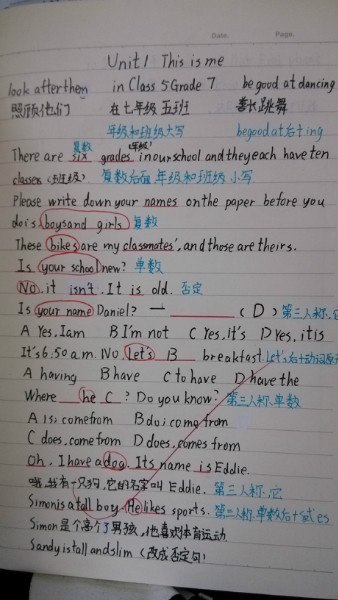 Date: Page.
Unit 1 This is me
look after them in Class 5 Grade 7 be good at dancing
照顾他们 在七年级五班 喜长跳舞
年级和班级大写 be good at 后+ing
复数 (年级)
There are six grades in our school and they each have ten
classes (班级) 复数后面年级和班级小写
Please write down your names on the paper before you
do is boys and girls 复数
These bikes are my classmates', and those are theirs.
Is your school new? 单数
No, it isn't. It is old. 否定
Is your name Daniel? — (D) 第三人称,它
A Yes, I am B I'm not C Yes, it's D Yes, it is
It's 6:50 a.m. NO. Let's B breakfast. Let's后+动词原
A having B have C to have D have the
Where he C ? Do you know? 第三人称,单数
A Is; come from B do; come from
C does, come from D does, comes from
Oh, I have a dog. Its name is Eddie.
哦,我有一只狗,它的名家叫 Eddie. 第三人称,它
Simon is a tall boy. He likes sports. 第三人称,单数后+s或es
Simon 是个高个了男孩,他喜欢体育运动
Sandy is tall and slim (改成否定句)